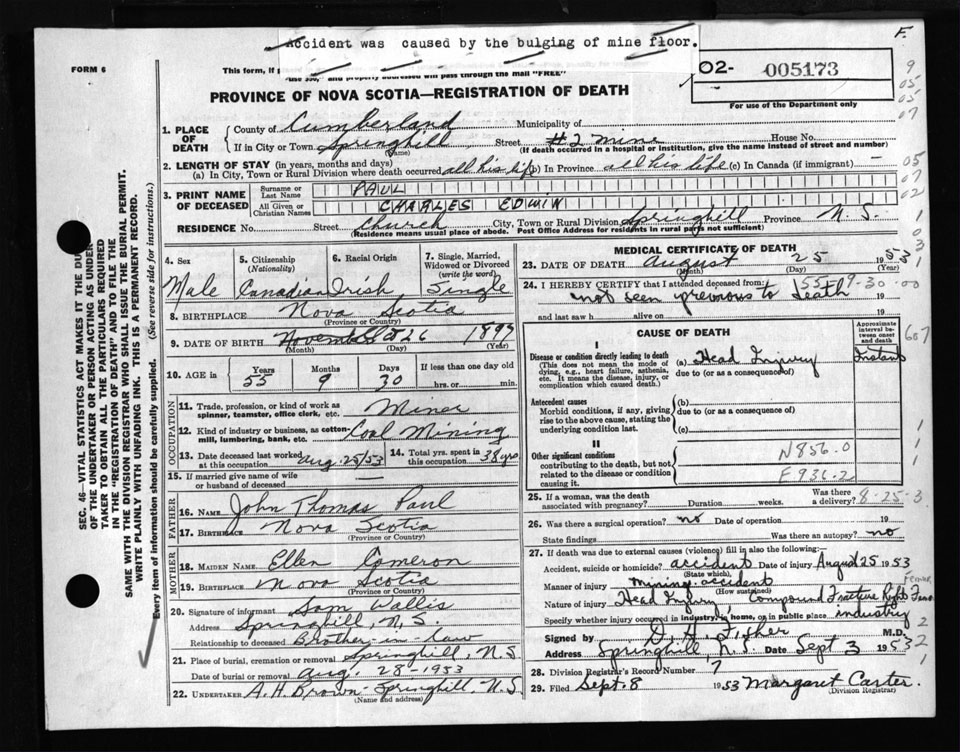 Accident was caused by the bulging of mine floor.
F.
FORM 6
This form, if
use 350, and properly addressed will pass through the mail "FREE"
02- 005173
For use of the Department only
PROVINCE OF NOVA SCOTIA—REGISTRATION OF DEATH
1. PLACE OF DEATH
County of Cumberland Municipality of
If in City or Town Springhill (Name) Street #2 mine House No.
(If death occurred in a hospital or institution, give the name instead of street and number)
2. LENGTH OF STAY (in years, months and days)
(a) In City, Town or Rural Division where death occurred all his life (b) In Province all his life (c) In Canada (if immigrant) —
3. PRINT NAME OF DECEASED
Surname or Last Name PAUL
All Given or Christian Names CHARLES EDWIN
RESIDENCE No. Street Church City, Town or Rural Division Springhill Province N.S.
(Residence means usual place of abode. Post Office Address for residents in rural parts not sufficient)
4. Sex Male
5. Citizenship (Nationality) Canadian
6. Racial Origin Irish
7. Single, Married, Widowed or Divorced (write the word) Single
8. BIRTHPLACE Nova Scotia
(Province or Country)
9. DATE OF BIRTH November 26 1897
(Month) (Day) (Year)
10. AGE Years 55 Months 9 Days 30 If less than one day old hrs. or min.
OCCUPATION
11. Trade, profession, or kind of work as spinner, teamster, office clerk, etc. Miner
12. Kind of industry or business, as cotton-mill, lumbering, bank, etc. Coal Mining
13. Date deceased last worked at this occupation Aug. 25/53
14. Total yrs. spent in this occupation 38 yrs
15. If married give name of wife or husband of deceased
FATHER
16. NAME John Thomas Paul
17. BIRTHPLACE Nova Scotia
(Province or Country)
MOTHER
18. MAIDEN NAME Ellen Comeron
19. BIRTHPLACE Nova Scotia
(Province or Country)
20. Signature of informant Sam Wallis
Address Springhill, N.S.
Relationship to deceased Brother-in-law
21. Place of burial, cremation or removal Springhill, N.S
Date of burial or removal Aug. 28-1953
22. UNDERTAKER A. H. Brown - Springhill, N.S.
(Name and address)
MEDICAL CERTIFICATE OF DEATH
23. DATE OF DEATH August 25 1953
(Month) (Day)
24. I HEREBY CERTIFY that I attended deceased from: 55-09-30-00
not seen previous to death 19
and last saw h alive on 19
CAUSE OF DEATH
Approximate interval between onset and death
I
Disease or condition directly leading to death
(This does not mean the mode of dying, e.g., heart failure, asthenia, etc. It means the disease, injury, or complication which caused death.)
(a) Head Injury Instant
due to (or as a consequence of)
Antecedent causes
Morbid conditions, if any, giving rise to the above cause, stating the underlying condition last.
(b)
due to (or as a consequence of)
(c)
II
Other significant conditions
contributing to the death, but not related to the disease or condition causing it.
N856.0
E936.2
25. If a woman, was the death associated with pregnancy? Duration weeks. Was there a delivery? 8-25-3
26. Was there a surgical operation? no Date of operation 19
State findings Was there an autopsy? no
27. If death was due to external causes (violence) fill in also the following:—
Accident, suicide or homicide? accident Date of injury August 25 1953
(State which)
Manner of injury Mining accident
(How sustained)
Nature of injury Head Injury, Compound Fracture Right
Specify whether injury occurred in industry, in home, or in public place industry
Signed by D. H. Fisher M.D.
Address Springhill, N.S. Date Sept 3 1953
28. Division Registrar's Record Number 7
29. Filed Sept. 8 1953 Margaret Carter.
(Division Registrar)
SEC. 46—VITAL STATISTICS ACT MAKES IT THE DUTY
OF THE UNDERTAKER OR PERSON ACTING AS UNDER-
TAKER TO OBTAIN ALL THE PARTICULARS REQUIRED
IN THE "REGISTRATION OF DEATH" AND TO FILE THE
SAME WITH THE DIVISION REGISTRAR WHO SHALL ISSUE THE BURIAL PERMIT.
WRITE PLAINLY WITH UNFADING INK. THIS IS A PERMANENT RECORD.
Every item of information should be carefully supplied. (See reverse side for instructions.)